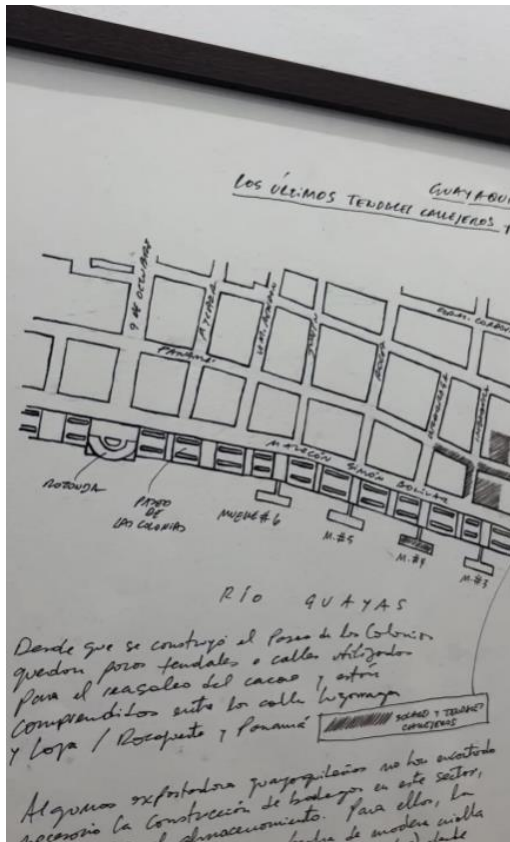 GUAYAQUI
LOS ÚLTIMOS TENDALES CALLEJEROS Y
9 DE OCTUBRE
PANAMÁ
JUNÍN
ROCA
MALECÓN SIMÓN BOLÍVAR
ROTONDA
PASEO
DE
LAS COLONIAS
MUELLE #6
M.#5
M.#4
M.#3
RÍO GUAYAS
Desde que se construyó el Paseo de las Colonias
quedan pocos tendales o calles utilizados
para el del cacao y están
comprendidos entre las calle
y Loja / Rocafuerte y Panamá
SOLARES Y TENDALES
CALLEJEROS
Algunos exportadores guayaquileños no han encontrado
necesario la construcción de bodegas en este sector,
almacenamiento. Para ellos, la
de madera